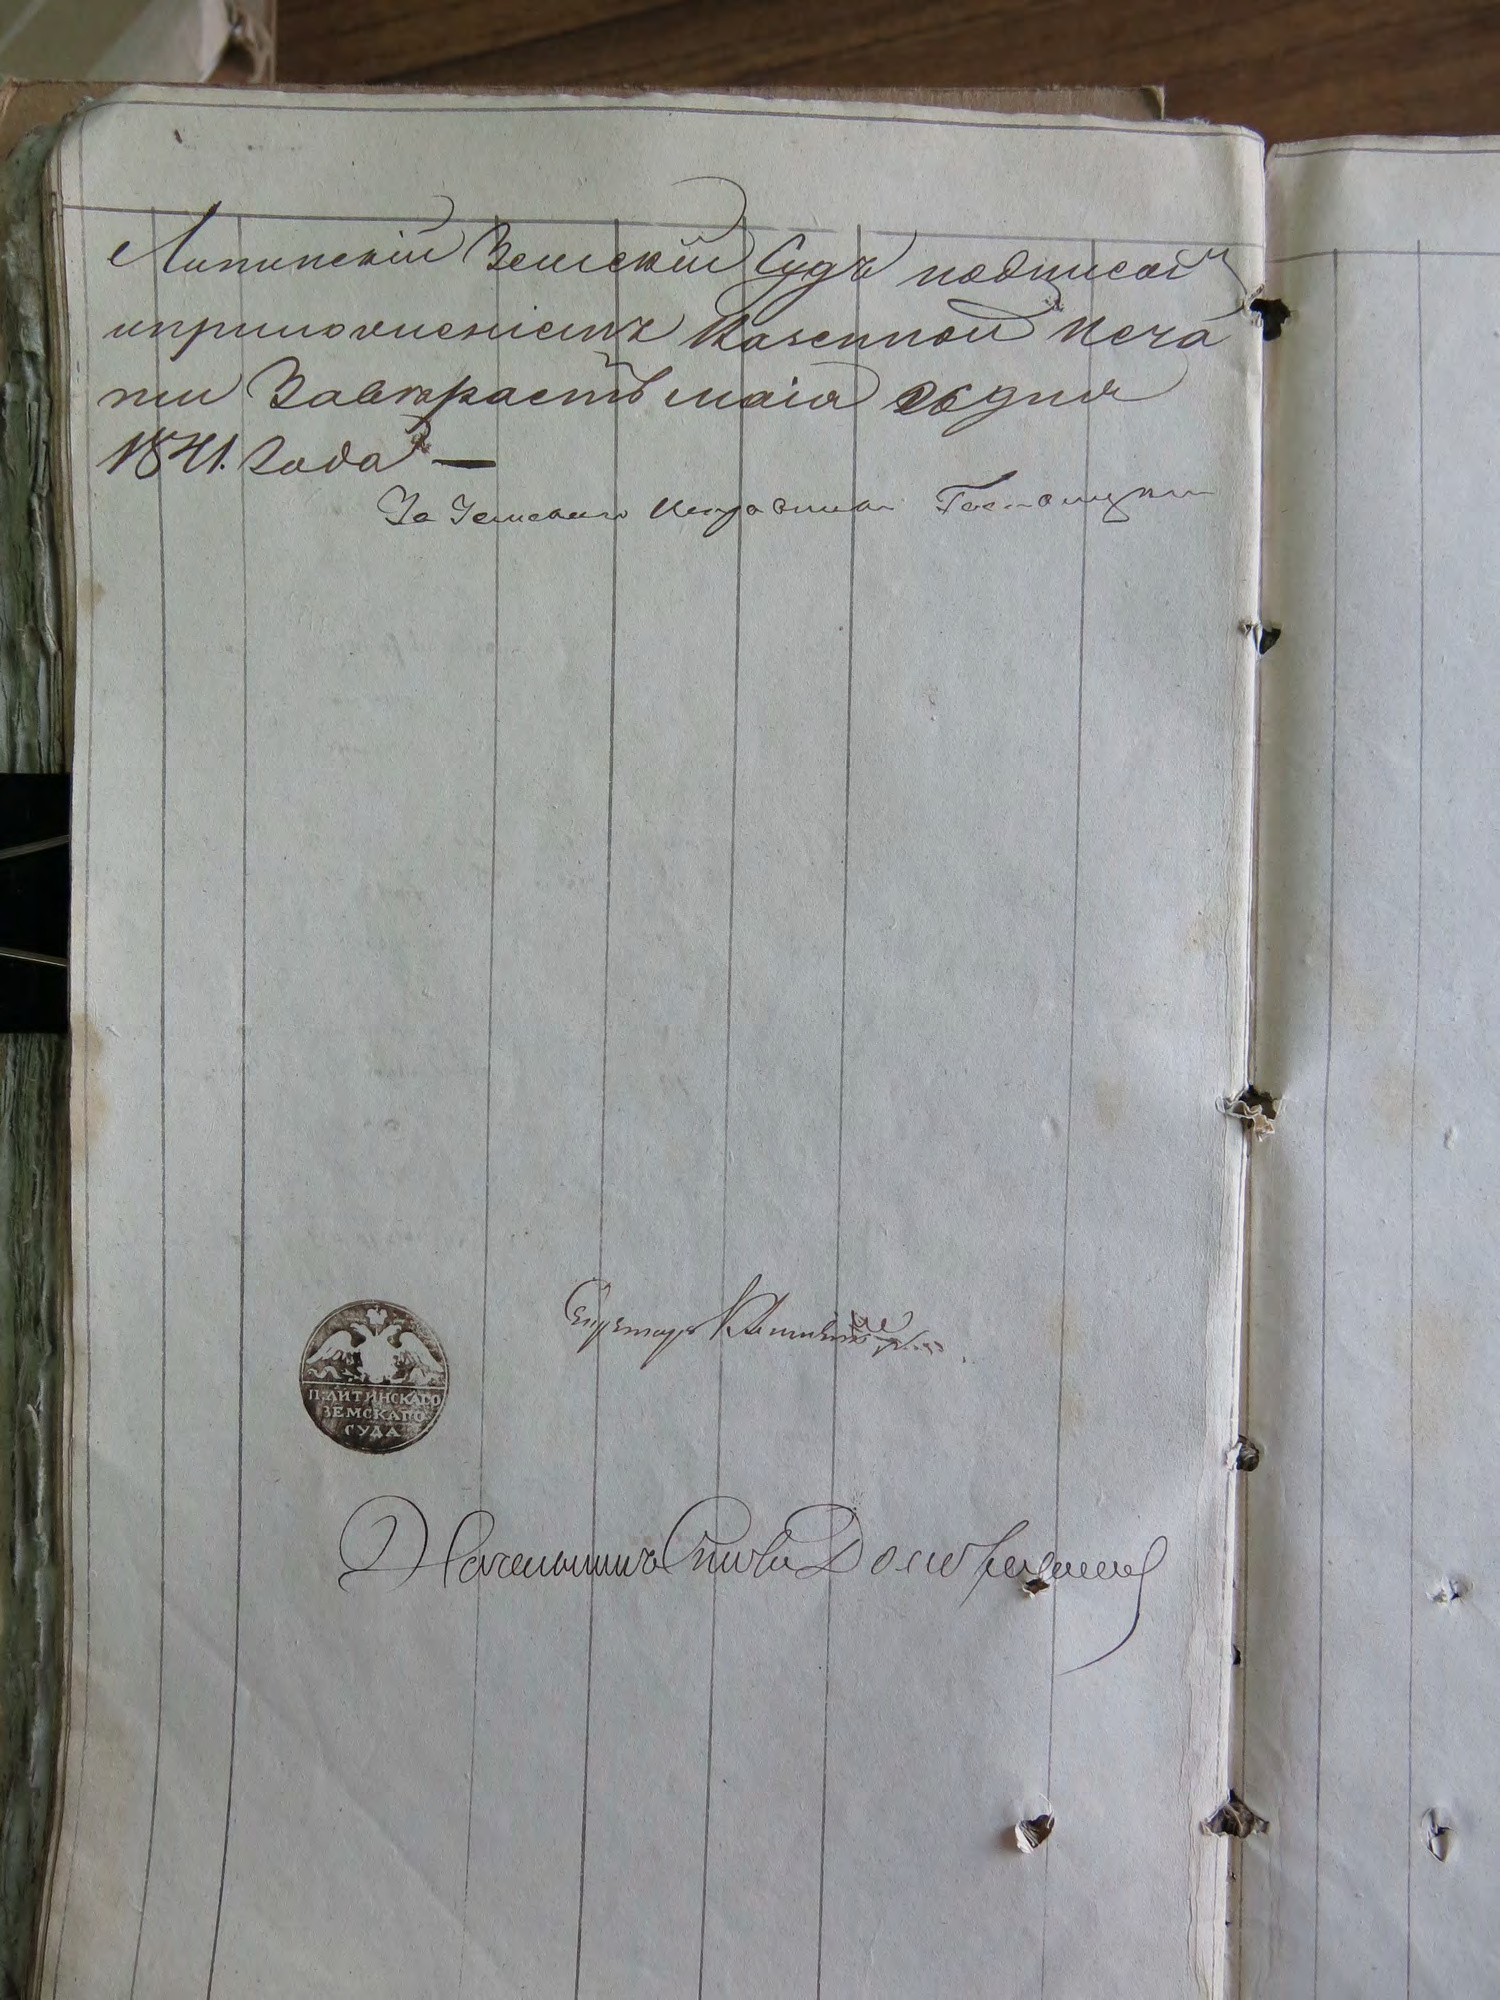 Литинскій Земскій Судъ подписомъ
иприложеніемъ Казенной Печа
ти Завѣряетъ маія 26 дня
1841. Года —
За Земскаго Исправника
Секретарь
П: ЛИТИНСКАГО
ЗЕМСКАГО
СУДА
Начальникъ Стола